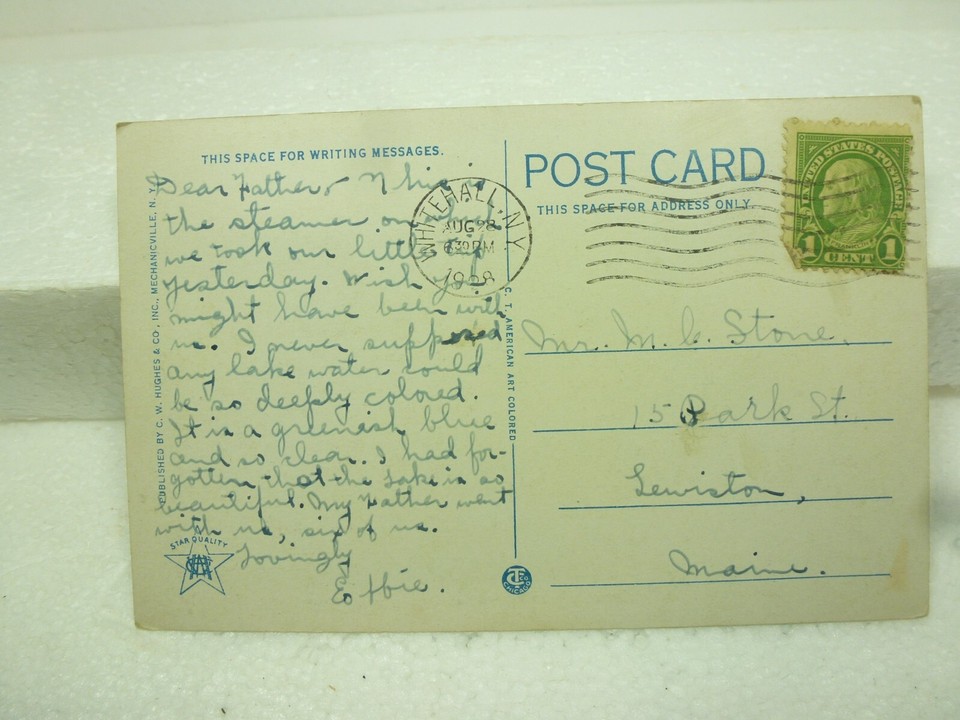 THIS SPACE FOR WRITING MESSAGES.
Dear Father,- This is
the steamer on which
we took our little trip
yesterday. Wish you
might have been with
us. I never supposed
any lake water could
be so deeply colored.
It is a greenish blue
and so clear. I had for-
gotten that the lake is so
beautiful. My Father went
with us, six of us.
Lovingly
Effie.
PUBLISHED BY C. W. HUGHES & CO., INC., MECHANICVILLE, N. Y.
STAR QUALITY
WHITEHALL, N.Y.
AUG 28
6 30 PM
1928
C. T. AMERICAN ART COLORED
CT
CHICAGO
POST CARD
THIS SPACE FOR ADDRESS ONLY.
UNITED STATES POSTAGE
1 CENT 1
Mr. M. C. Stone,
15 Park St.
Lewiston,
Maine.